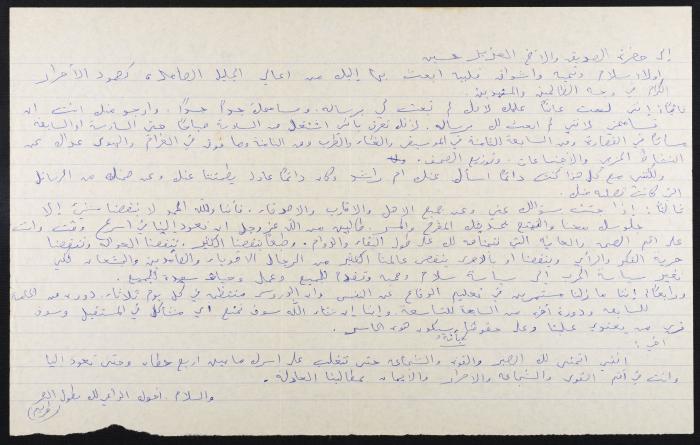 إلى حضرة الصديق والأخ العزيز حسين
أولاً سلام وتحية وأشواق قلبية أبعث بها إليك من أعالي الجليل الصامد، كصمود الأحرار
الكرام في وجه الظالمين
ثانياً: إنني لست عاتباً عليك لأنك لم تبعث لي برسالة، ومسامحك جداً جداً. وأرجو منك أنت أن
تسامحني لأنني لم أبعث لك برسالة. لأنك تعرف بأنني أشتغل من السادسة صباحاً حتى السادسة أو السابعة
مساءً في القصارة ومن السابعة للثامنة في الموسيقى والغناء والطرب ومن الثامنة وما فوق في الغرام والهوى عداك عن
النشاط الحزبي والاجتماعات وتوزيع الصحف.
ولكنني مع كل هذا كنت دائماً أسأل عنك أم راشد وكان دائماً عادل يطمننا عنك وعن صحتك من الرسائل
التي كانت تصله منك.
ثالثاً: إذا جئت بسؤالك عني وعن جميع الأهل والأقارب والأصدقاء، فإننا ولله الحمد لا ينقصنا شيئاً إلا
جلوسك معنا والتمتع بحديثك المفرح والمسر. طالبين من الله عز وجل أن تعود إلينا في أسرع وقت وأنت
على أتم الصحة والعافية التي نتمناها لك على طول البقاء والدوام. وطبعاً ينقصنا الكثير، تنقصنا الجولان وتنقصنا
حرية الفكر والرأي وينقصنا أو بالأحرى ينقص عالمنا الكثير من الرجال الأقوياء والشجعان لكي
تغير سياسة الحرب إلى سياسة سلام ومحبة وتقدم للجميع وعمل وحياة سعيدة للجميع.
ورابعاً: إننا ما زلنا مستمرين في تعليم الدفاع عن النفس وأن الدروس منتظمة في كل يوم ثلاثاء، دورة من الخامسة
للسابعة ودورة أخرى من السابعة للتاسعة. وإننا إن شاء الله سوف نمنع أي مشاكل في المستقبل وسوف
نرى من يعتدي علينا وعلى حقوقنا وسيكون هو الخاسر.
أخي:
إنني أتمنى لك الصبر والقوة والشجاعة حتى تتغلب على أسرك ما بين أربع حيطان وحتى تعود إلينا
وأنت في أتم القوى والشجاعة والإصرار والإيمان بمطالبنا العادلة.
والسلام. أخوك الداعي لك بطول العمر